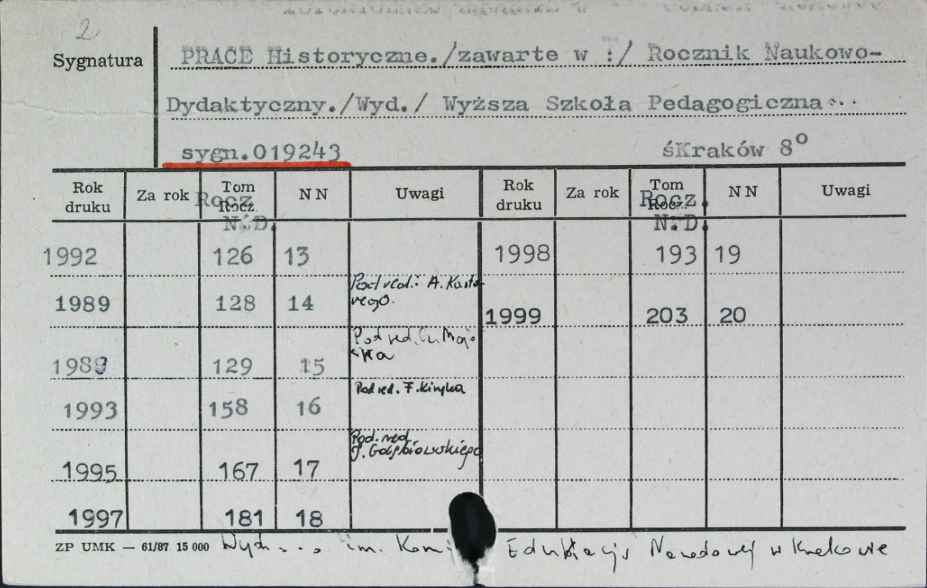 2
Sygnatura
PRACE Historyczne./zawarte w :/ Rocznik Naukowo-
Dydaktyczny./Wyd./ Wyższa Szkoła Pedagogiczna...
sygn.019243 śKraków 8°
Rok druku Za rok Tom Rocz. NN Uwagi Rok druku Za rok Tom Rocz. NN Uwagi
Rocz. N.D. Rocz. N.D.
1992 126 13 1998 193 19
1989 128 14 Pod red.: A. Kasta-
rego. 1999 203 20
1989 129 15 Pod red.
ska
1993 158 16 Pod red. F. Kiryka
1995 167 17 Pod. red.
J. Gołębiowskiego
1997 181 18
ZP UMK — 61/87 15 000 Wyd... im. Edukacji Narodowej w Krakowie